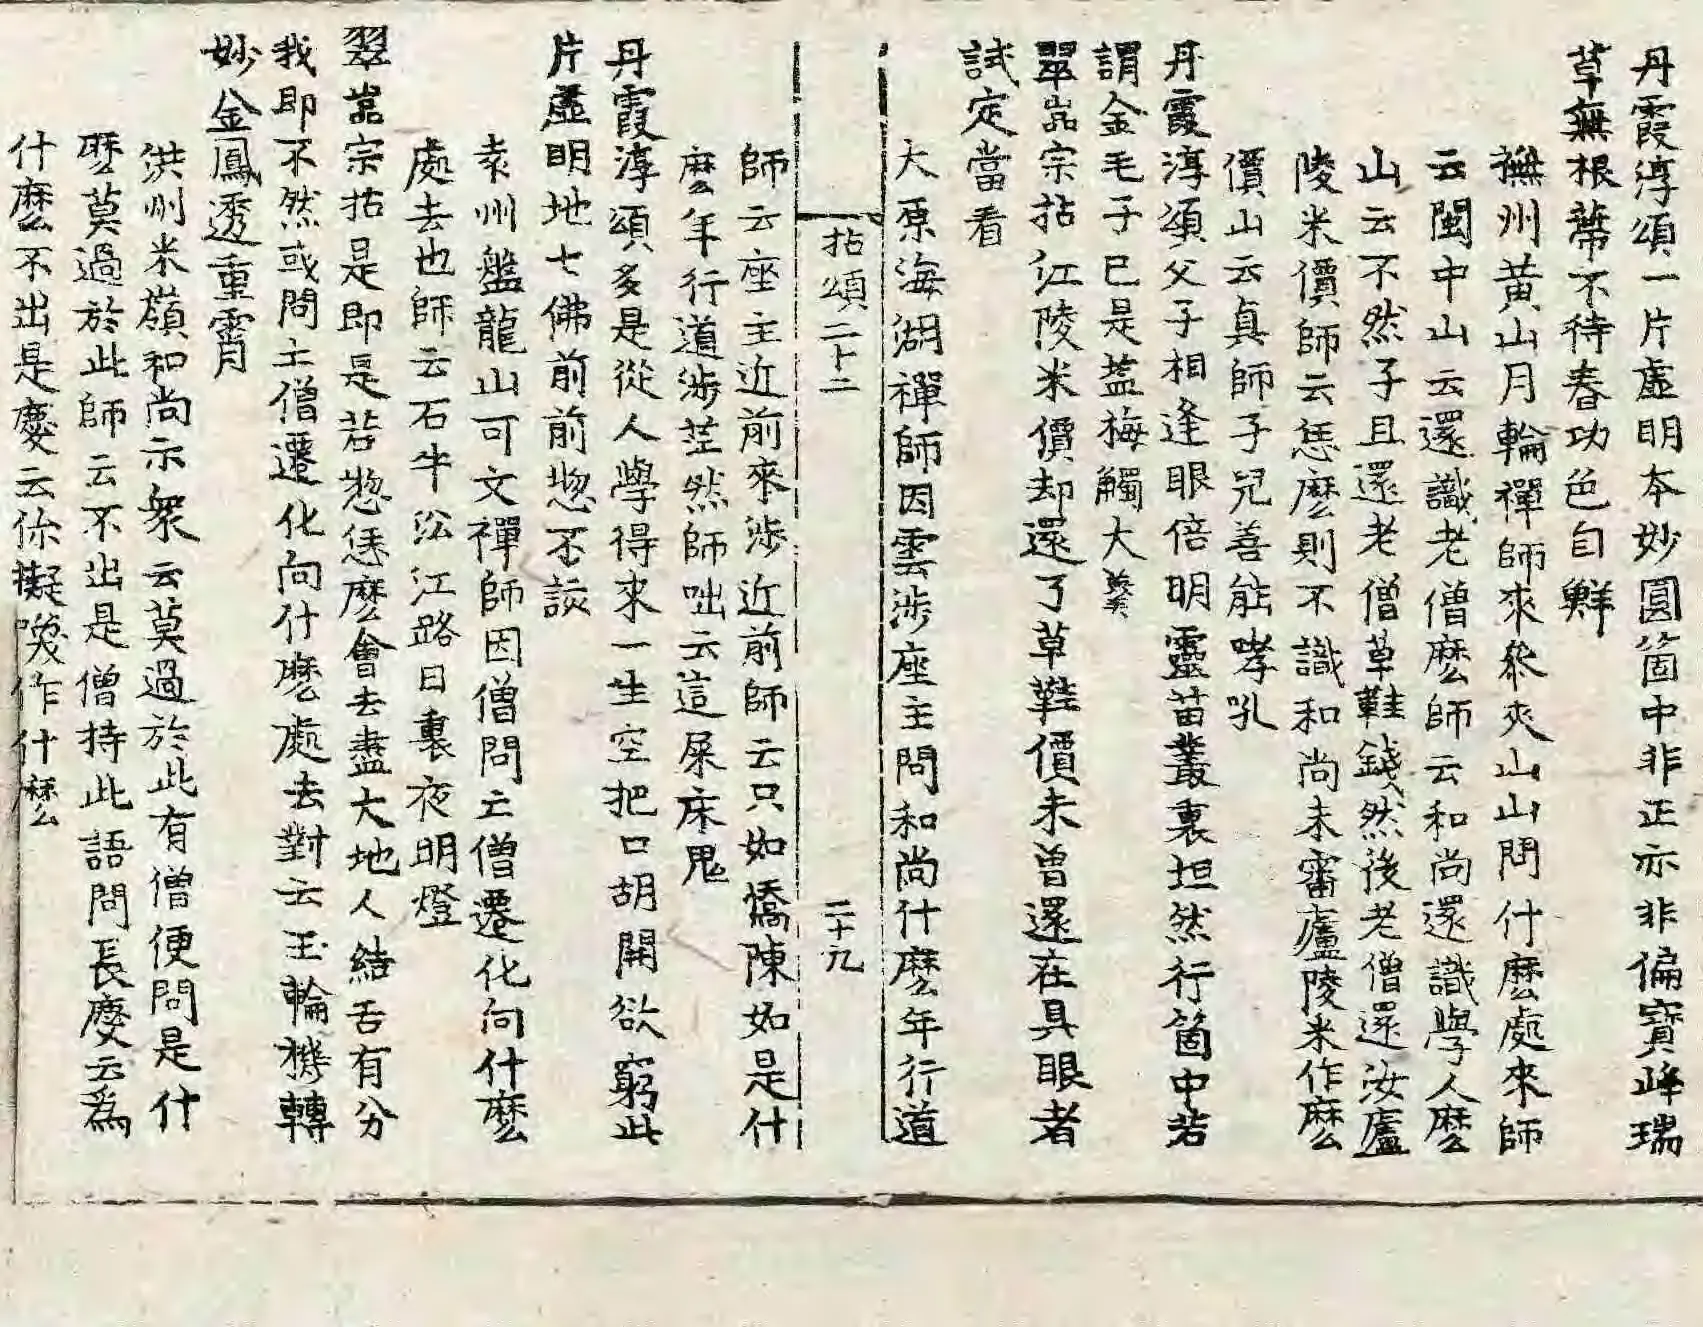 丹霞淳頌一片虛明本妙圓箇中非正亦非偏寶峰瑞
草無根蔕不待春功色自鮮
撫州黃山月輪禪師來叅夾山山問什麽處來師
云閩中山云還識老僧麽師云和尚還識學人麽
山云不然子且還老僧草鞋錢然後老僧還汝廬
陵米價師云恁麽則不識和尚未審廬陵米作麽
價山云眞師子兒善能哮吼
丹霞淳頌父子相逢眼倍明靈苗叢裏坦然行箇中若
謂金毛子已是塩梅觸大羮
翠嵓宗拈江陵米價却還了草鞋價未曾還在具眼者
試定當看
大原海湖禪師因雲涉座主問和尚什麽年行道
拈頌二十二 二十九
師云座主近前來涉近前師云只如憍陳如是什
麽年行道涉茫然師咄云這屎床鬼
丹霞淳頌多是從人學得來一生空把口胡開欲窮此
片虛明地七佛前前前惣不該
袁州盤龍山可文禪師因僧問亡僧遷化向什麽
處去也師云石牛㳂江路日裏夜明燈
翠嵓宗拈是即是若惣恁麽會去盡大地人結舌有分
我即不然或問亡僧遷化向什麽處去對云玉輪機轉
妙金鳳透重霄
洪州米嶺和尚示衆云莫過於此有僧便問是什
麽莫過於此師云不出是僧持此語問長慶云爲
什麽不出是慶云你擬喚作什麽